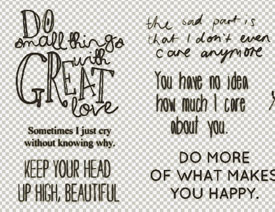 DO
small things
with
GREAT
love
Sometimes I just cry
without knowing why.
KEEP YOUR HEAD
UP HIGH, BEAUTIFUL
the sad part is
that I don't even
care anymore
You have no idea
how much I care
about you.
DO MORE
OF WHAT MAKES
YOU HAPPY.